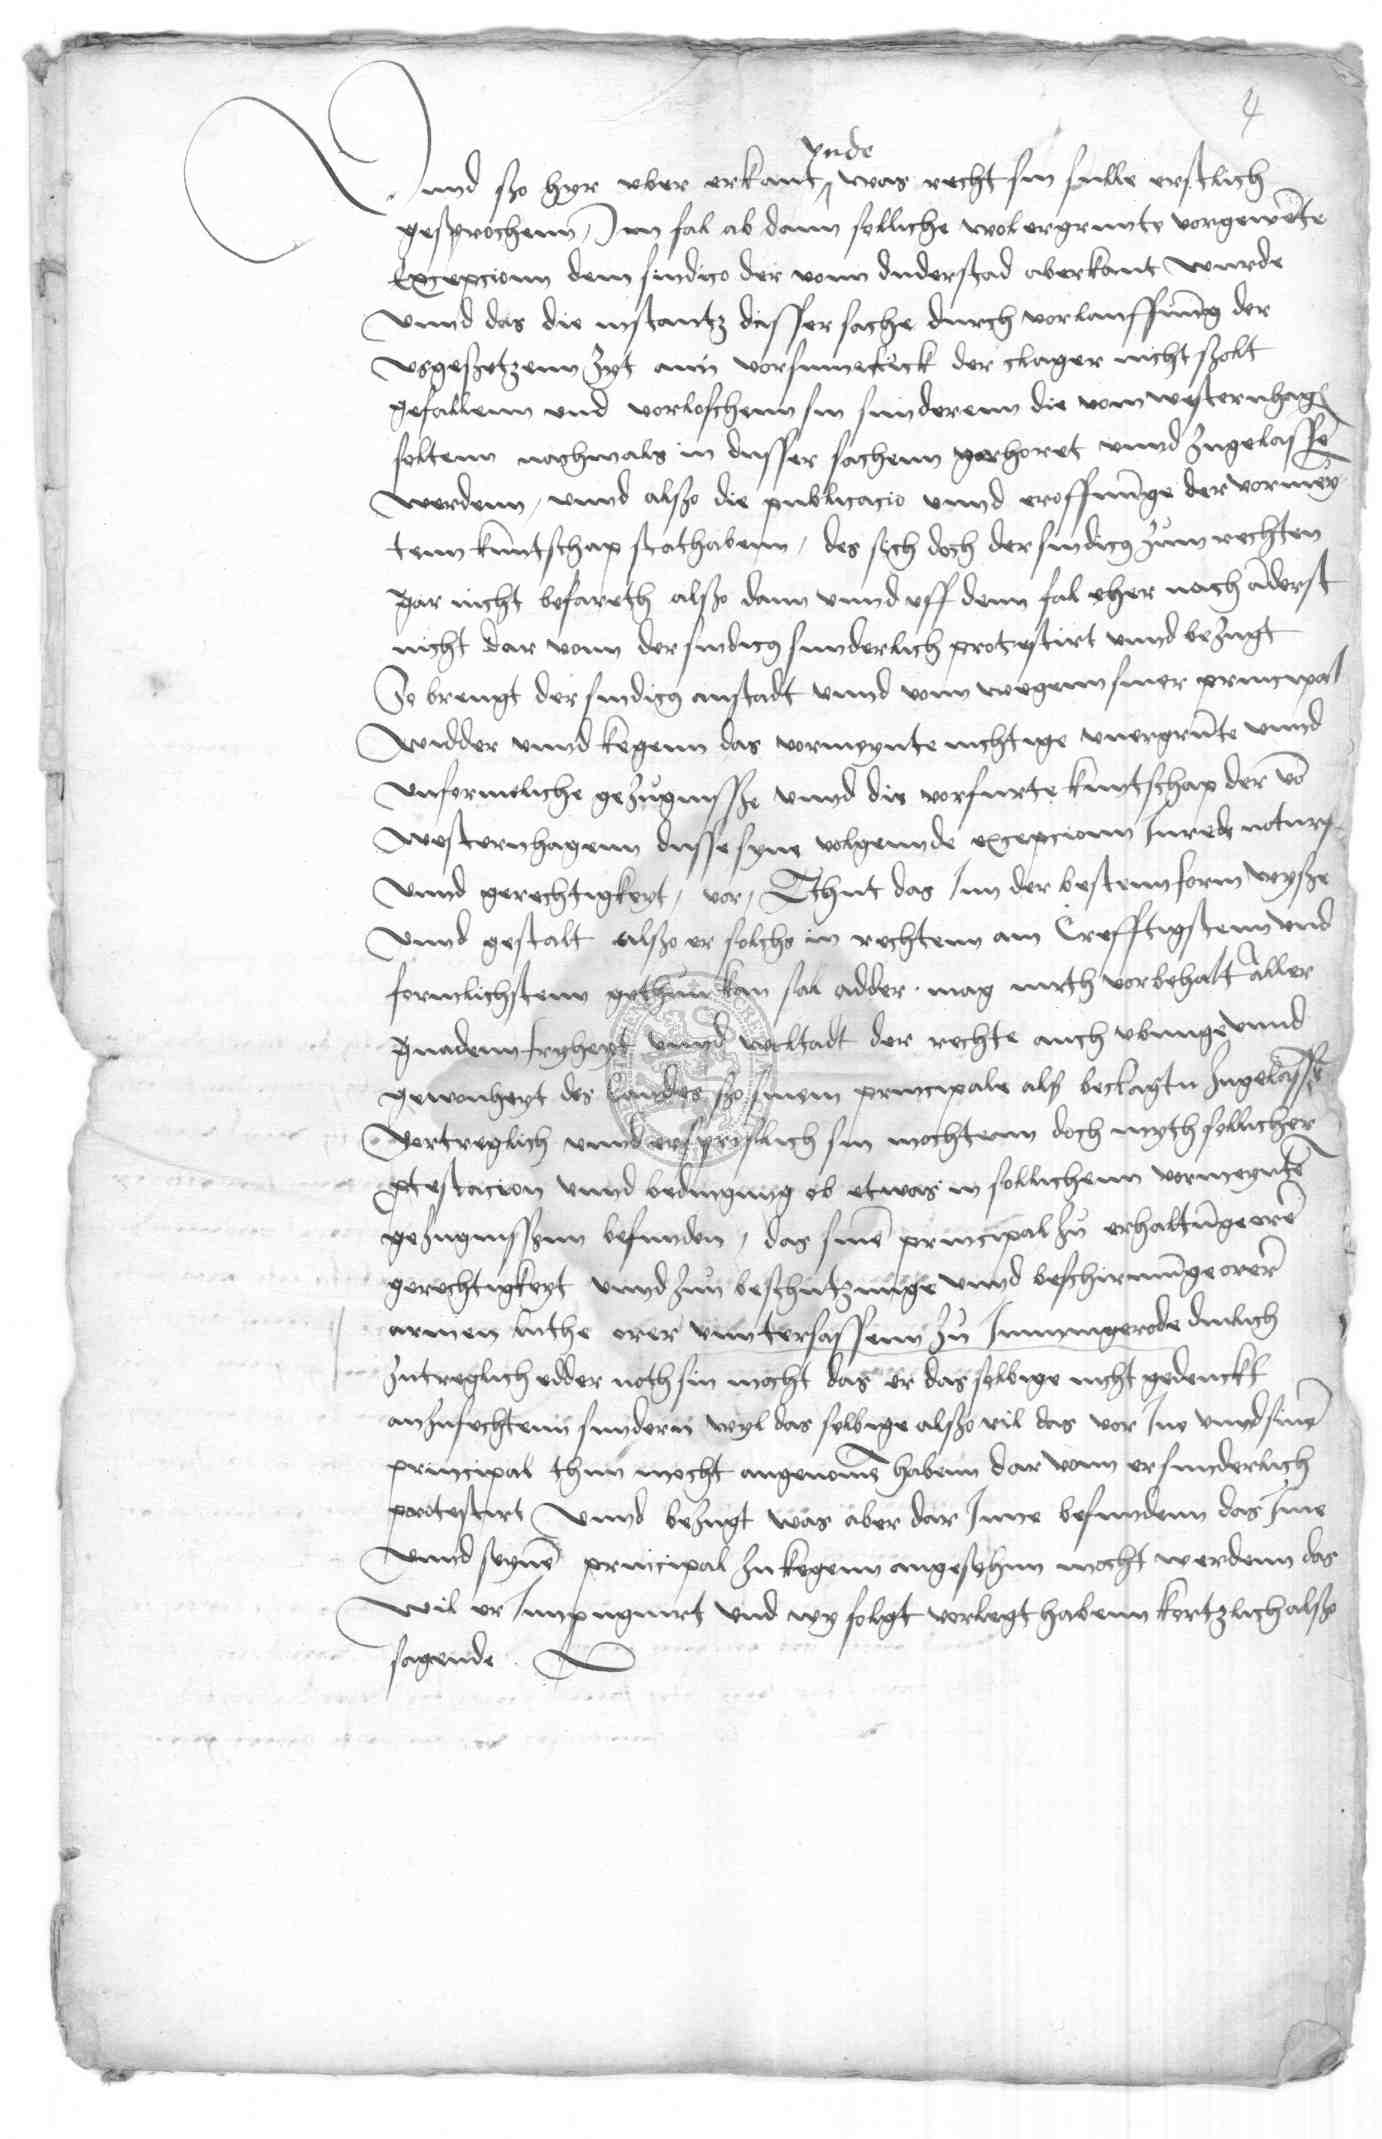 4
ynde
Vnnd szo hyr vber erkant was recht sin sulle erstlich
gesprochenn, Im fal ab dann solliche wol ergrunte vorgewēte
Excepcionn dem sindico der vonn duderstad aberkant wurde
vnnd das die instantz dusser sache durch vorlauffung der
vsgeszetzenn Zyt der clager nicht szolt
gefallenn vnd vorloschenn sin sunderenn die vom westernhagē
soltenn nachmals in dusser sachenn gehoret vnnd Zugelassē
werdenn, vnnd alszo die publicacio vnnd eroffnūnge der vormey
tenn kuntschap stathabenn, des sych doch der sindicus Zum rechten
gar nicht befareth alszo dann vnnd vff denn fal eher nach āderst
nicht dar vonn der sindicus sunderlich protestirt vnnd beZugt
So brengt der sindicus anstadt vnnd vonn wegenn siner principal
widder vnnd kegenn das vormeynte nichtige vnergrūte vnnd
vnformeliche geZugnisse vnnd die vorfurte kuntschap der vō
westernhagenn dusse syne volgennde excepcionn Inrede noturft
vnnd gerechtigkeyt, vor, Thut das Inn der bestenn form wysze
vnnd gestalt alszo er solchs in rechtenn am Crefftigstenn vnd
formlichstenn gethun kan sal adder mag mith vorbehalt aller
gnadenn fryheyt vnnd woltadt der rechte auch vbunge vnnd
gewonheyt des landes szo sinem principale als beclagtn Zugelassē
Vortreglich vnnd ersprislich sin mochtenn doch myth sollicher
ptestacion vnnd bedingung ob etwas in sollichenn vormeyntē
geZugnissenn befunden, das sinē principal Zu erhaltūge orē
gerechtigkeyt vnnd Zun beschutzunge vnnd beschirmūge orer
armen luthe orer vnntersassenn Zu Immingerode dinlich
Zutreglich edder noth sin mocht das er das selbige nicht gedenckt
anZufechtenn sundern wyl das selbige alszo vil das vor Ine vnnd sinē
principal thun mocht angenomē habenn dar vonn er sunderlich
protestirt vnnd beZugt was aber dar Inne befundenn das Ine
vnnd seynē principal Zu kegenn angesehnn mocht werdenn das
wil er Inpugnirt vnd wy folgt vorlegt habenn kortzlich alszo
sagende.